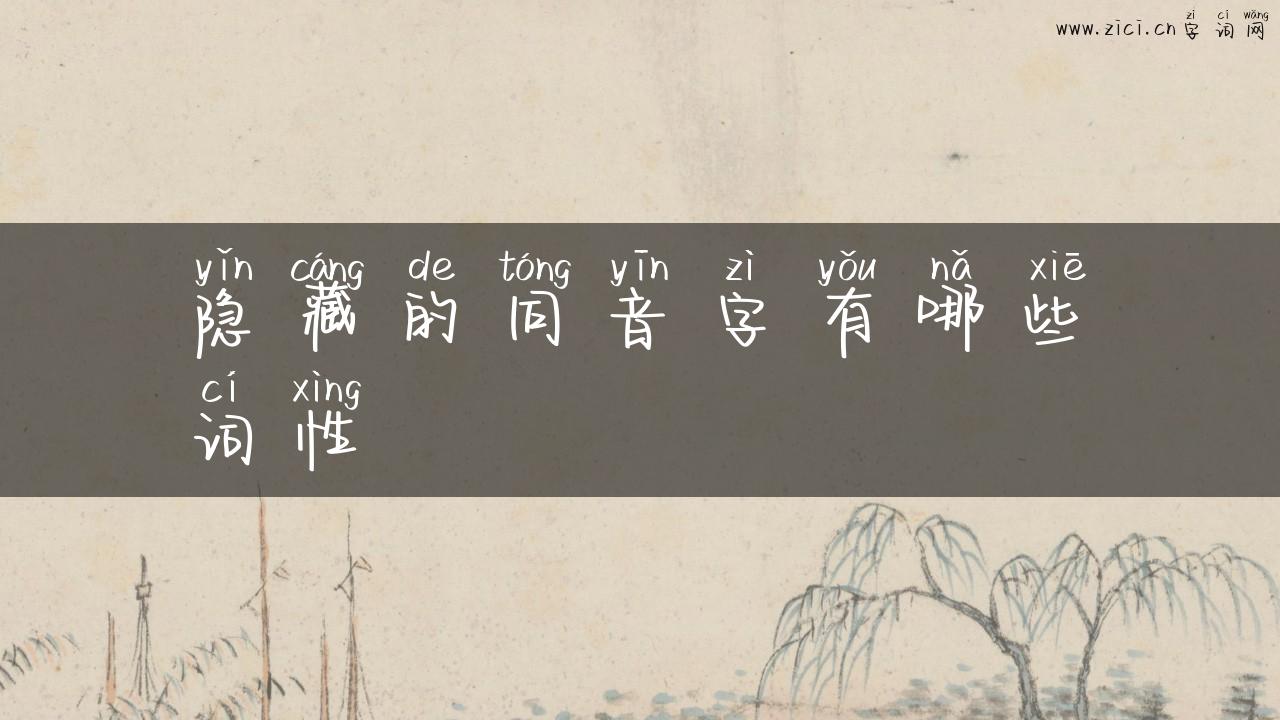 zì cí wǎng
www.zici.cn 字词网
yǐn cáng de tóng yīn zì yǒu nǎ xiē
隐藏的同音字有哪些
cí xìng
词性